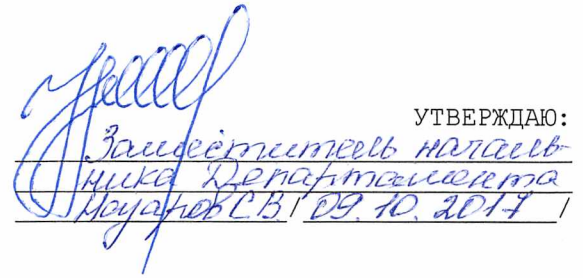 УТВЕРЖДАЮ:
Заместитель началь-
ника Департамента
С.В. / 09.10.2017 /